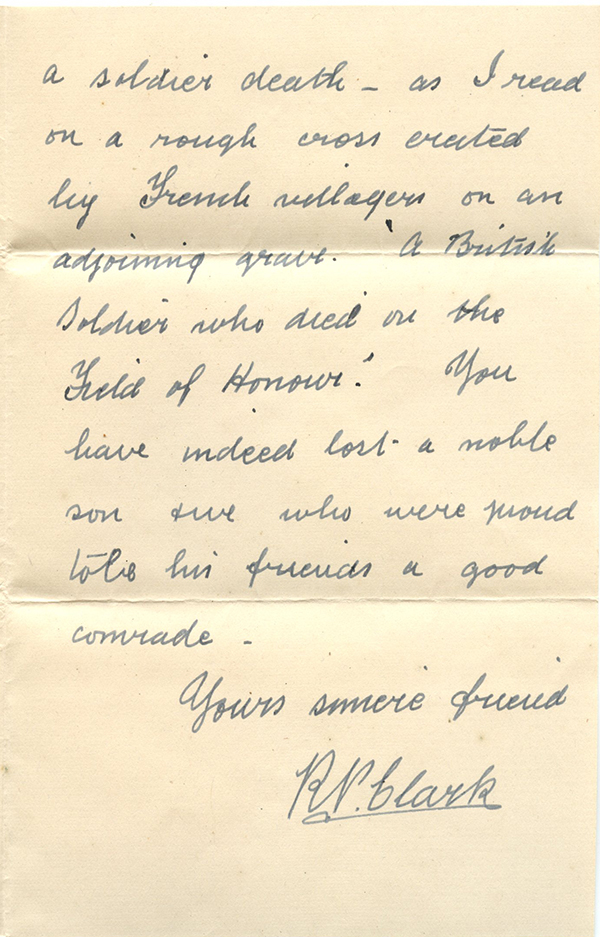 a soldier death - as I read
on a rough cross erected
by French villagers on an
adjoining grave. "A British
Soldier who died on the
Field of Honour." You
have indeed lost a noble
son & we who were proud
to be his friends a good
comrade -
Yours sincere friend
R. P. Clark